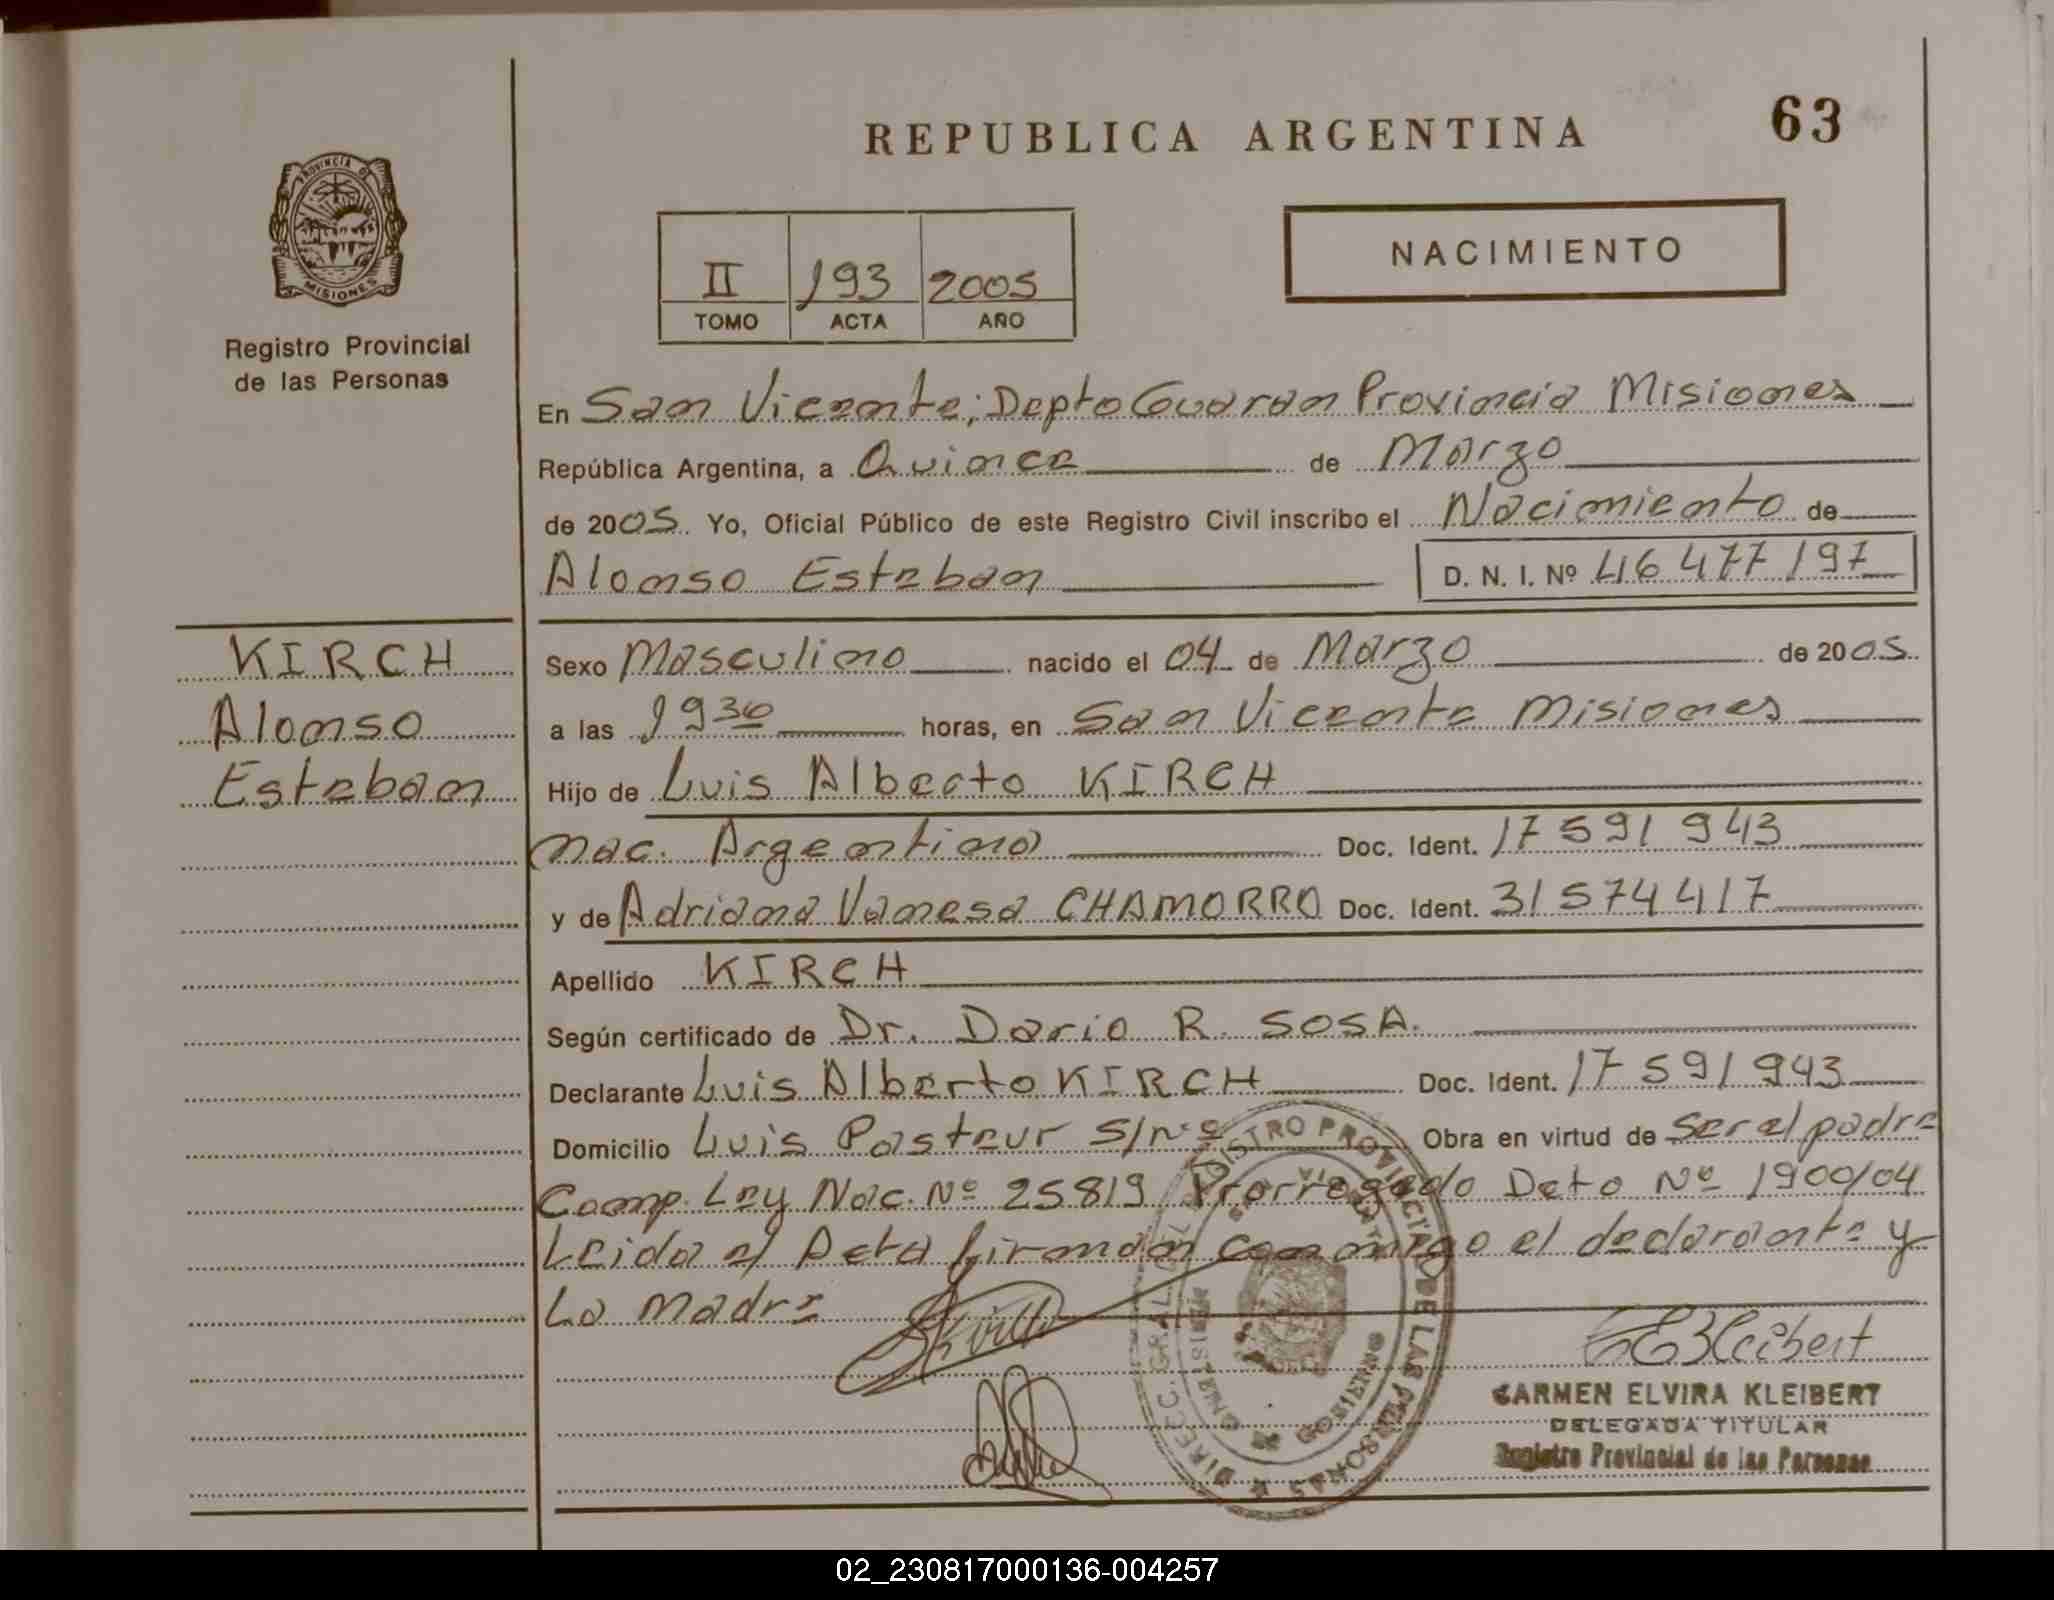 REPUBLICA ARGENTINA
63
PROVINCIA DE
MISIONES
Registro Provincial
de las Personas
II 193 2005
TOMO ACTA AÑO
NACIMIENTO
En San Vicente; Depto Guaran Provincia Misiones
República Argentina, a Quince de Marzo
de 2005. Yo, Oficial Público de este Registro Civil inscribo el Nacimiento de
Alonso Esteban D. N. I. Nº 46 477 197
KIRCH
Alonso
Esteban
Sexo Masculino nacido el 04 de Marzo de 2005
a las 1930 horas, en San Vicente Misiones
Hijo de Luis Alberto KIRCH
nac. Argentina Doc. Ident. 17 591 943
y de Adriana Vanesa CHAMORRO Doc. Ident. 31 574 417
Apellido KIRCH
Según certificado de Dr. Dario R. SOSA.
Declarante Luis Alberto KIRCH Doc. Ident. 17 591 943
Domicilio Luis Pasteur S/Nº Obra en virtud de Ser el padre
Comp. Ley Nac. Nº 25819 Prorrogado Dcto Nº 1900/04
Leida el Acta firman conmigo el declarante y
La Madre
DIRECC. GRAL. DEL REGISTRO PROVINCIAL DE LAS PERSONAS
SAN VICENTE
GOBIERNO
CEKleibert
CARMEN ELVIRA KLEIBERT
DELEGADA TITULAR
Registro Provincial de las Personas
02_230817000136-004257